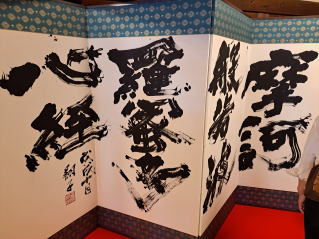 摩訶
般若波
羅蜜多
心経
翔子